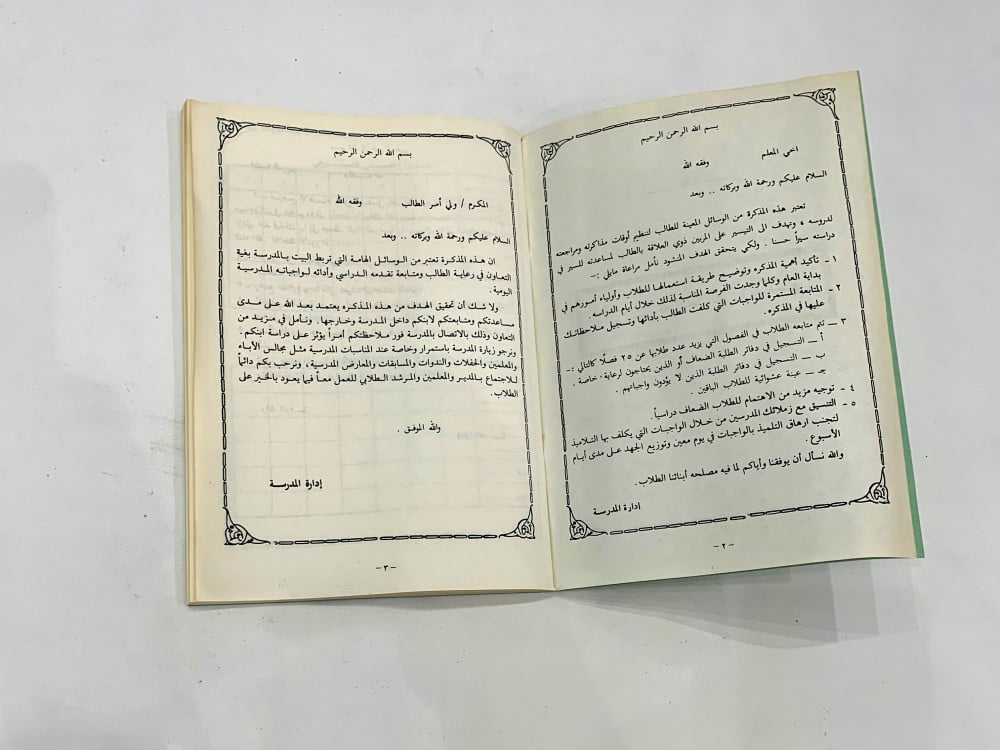 بسم الله الرحمن الرحيم
اخي المعلم وفقه الله
السلام عليكم ورحمة الله وبركاته .. وبعد
تعتبر هذه المذكرة من الوسائل المعينة للطالب لتنظيم أوقات مذاكرته ومراجعته
لدروسه ، وتهدف الى التيسير على المربين ذوي العلاقة بالطالب لمساعدته للسير في
دراسته سيراً حسنا . ولكي يتحقق الهدف المنشود نأمل مراعاة مايلي :-
١ - تأكيد أهمية المذكره وتوضيح طريقة استعمالها للطلاب وأولياء أمورهم في
بداية العام وكلما وجدت الفرصة المناسبة لذلك خلال أيام الدراسه .
٢ - المتابعة المستمرة للواجبات التي كلفت الطالب بأدائها وتسجيل ملاحظاتك
عليها في المذكره .
٣ - تتم متابعه الطلاب في الفصول التي يزيد عدد طلابها عن ٢٥ فصلًا كالتالي :-
أ - التسجيل في دفاتر الطلبة الضعاف أو الذين يحتاجون لرعاية خاصة .
ب - التسجيل في دفاتر الطلبة الذين لا يؤدون واجباتهم .
جـ - عينة عشوائية للطلاب الباقين .
٤ - توجيه مزيد من الاهتمام للطلاب الضعاف دراسياً.
٥ - التنسيق مع زملائك المدرسين من خلال الواجبات التي يكلف بها التلاميذ
لتجنب ارهاق التلميذ بالواجبات في يوم معين وتوزيع الجهد على مدى أيام
الأسبوع .
والله نسأل أن يوفقنا وأياكم لما فيه مصلحه أبنائنا الطلاب .
إدارة المدرسة
- ٢ -
بسم الله الرحمن الرحيم
المكرم / ولي أمر الطالب وفقه الله
السلام عليكم ورحمة الله وبركاته .. وبعد
ان هذه المذكرة تعتبر من الوسائل الهامة التي تربط البيت بالمدرسة بغية
التعاون في رعاية الطالب ومتابعة تقدمه الدراسي وأدائه لواجباته المدرسية
اليومية .
ولا شك أن تحقيق الهدف من هذه المذكره يعتمد بعد الله على مدى
مساعدتكم ومتابعتكم لابنكم داخل المدرسة وخارجها. ونأمل في مزيد من
التعاون وذلك بالاتصال بالمدرسة فور ملاحظتكم أمراً يؤثر على دراسة ابنكم .
ونرجو زيارة المدرسة باستمرار وخاصة عند المناسبات المدرسية مثل مجالس الآباء
والمعلمين والحفلات والندوات والمسابقات والمعارض المدرسية، ونرحب بكم دائماً
للاجتماع بالمدير والمعلمين والمرشد الطلابي للعمل معاً فيما يعود بالخير على
الطلاب.
والله الموفق .
إدارة المدرسة
- ٣ -